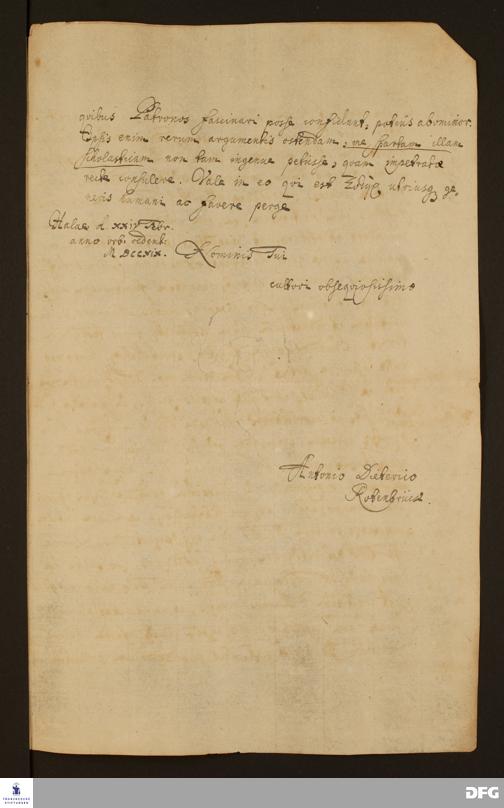 quibus Patronos fascinari posse confidunt, potius abominor.
Ipsis enim rerum argumentis ostendam, me Spartam illam
scholasticam non tam ingenue petiisse, quam impetratae
recte consulere. Vale in eo qui est utriusq ge,
neris humani ac favere perge
Halae d. XXIV Febr.
anno orb. redemt.
MDCCXIX.
Nominis Tui
cultori obsequiosissimo
Antonio Dieterico
FRANCKESCHE
STIFTUNGEN
DFG